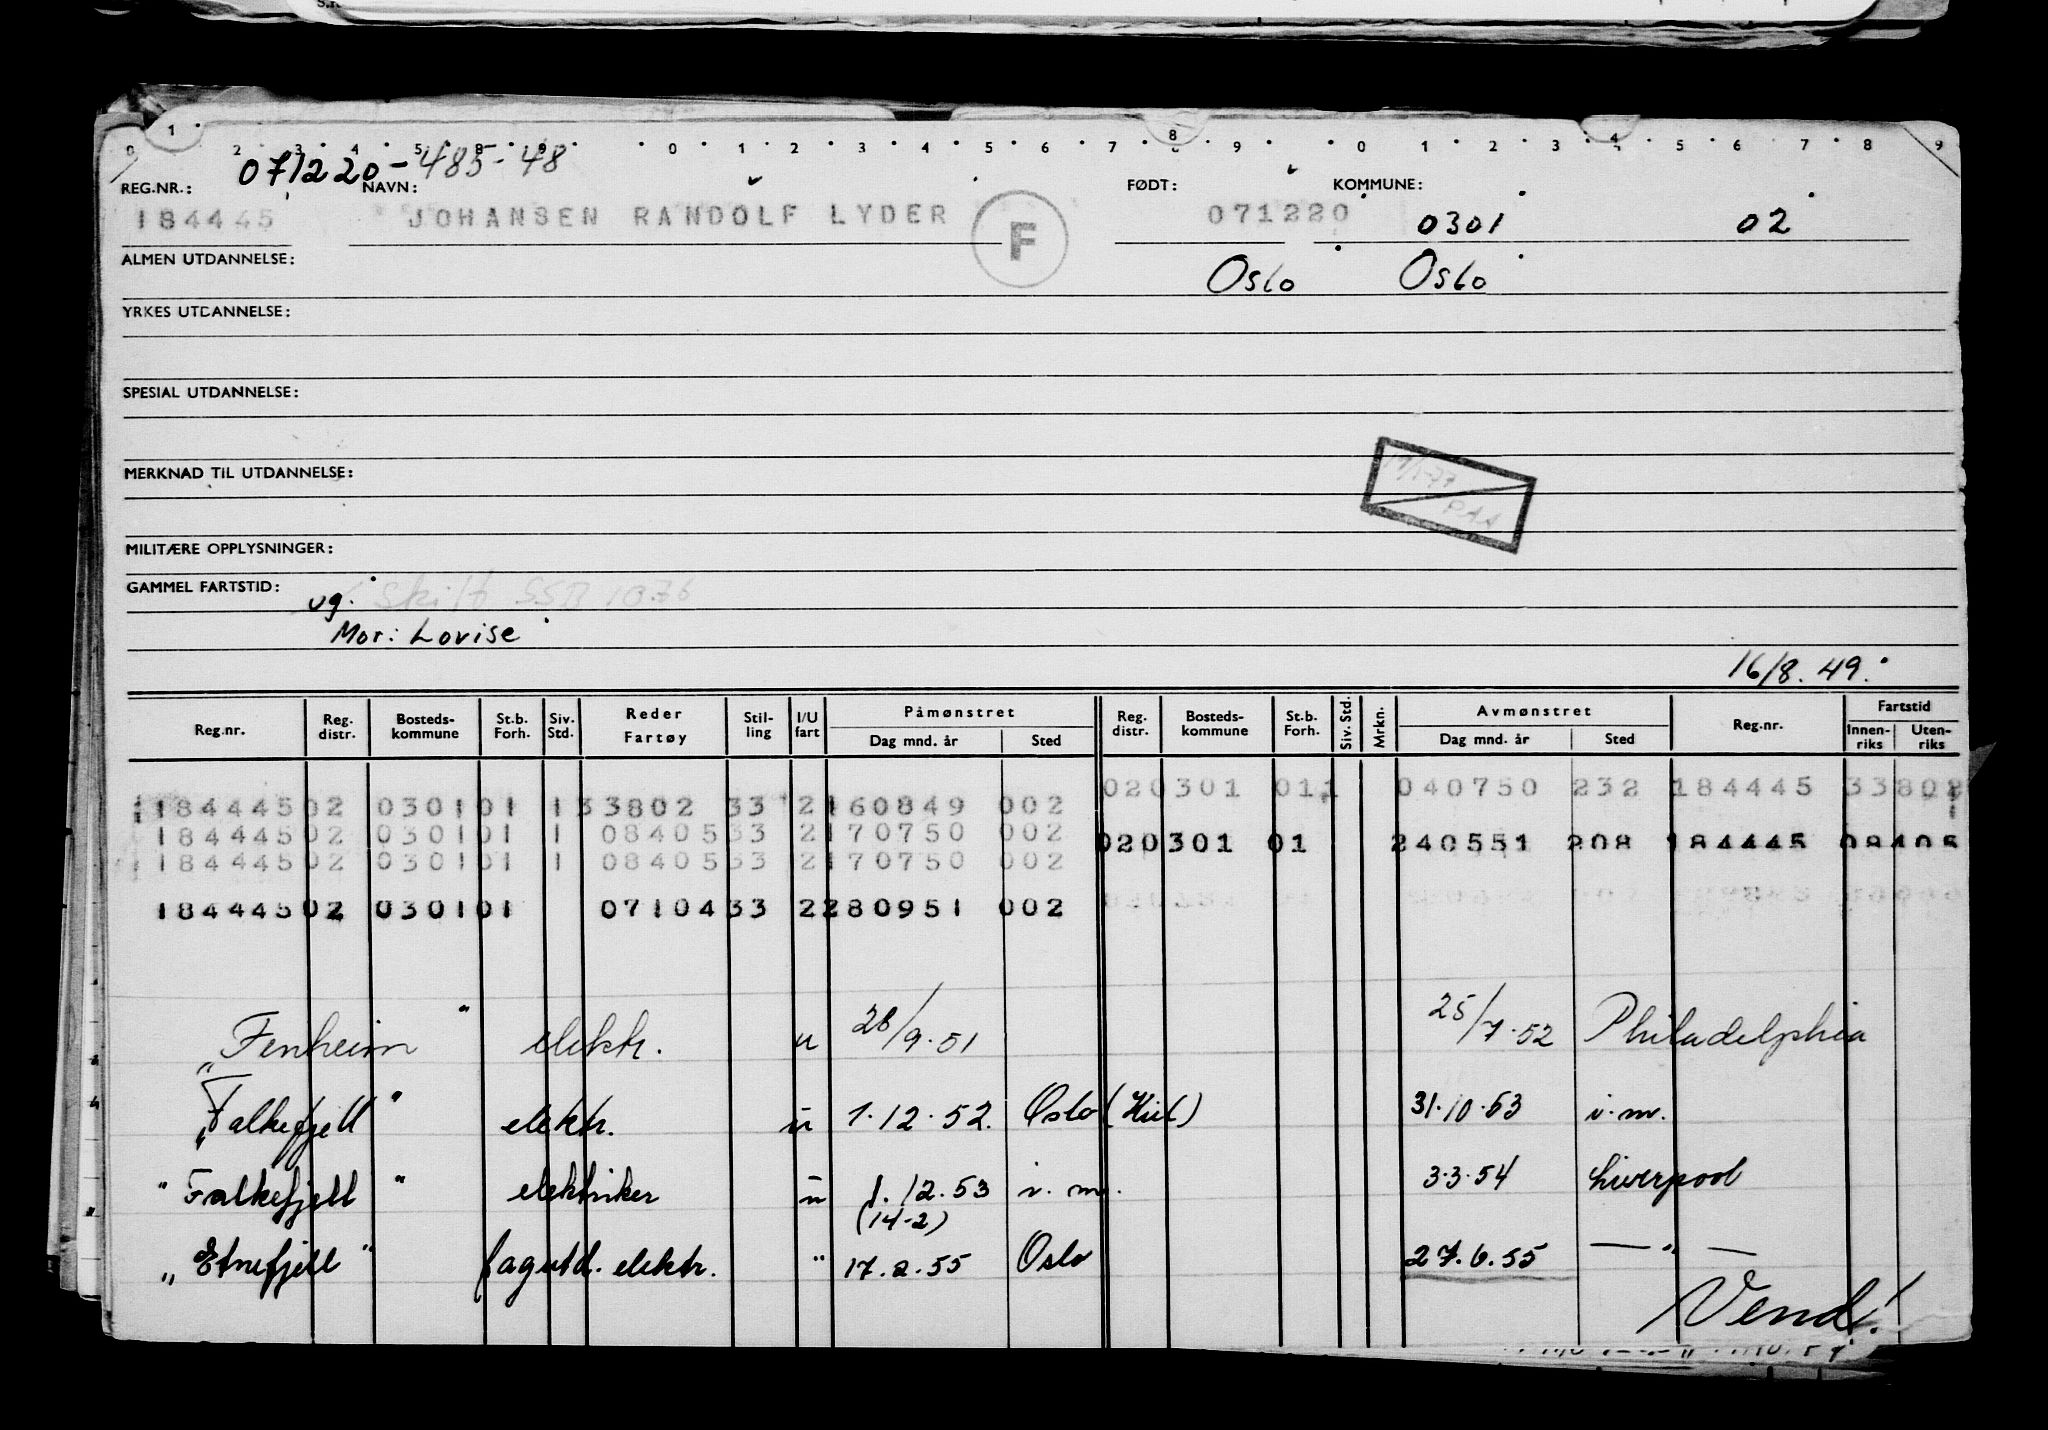 071220-485-48
REG.NR.: NAVN: FØDT: KOMMUNE:
184445 JOHANSEN RANDOLF LYDER F 071220 0301 02
ALMEN UTDANNELSE: Oslo Oslo
YRKES UTDANNELSE:
SPESIAL UTDANNELSE:
MERKNAD TIL UTDANNELSE:
MILITÆRE OPPLYSNINGER:
GAMMEL FARTSTID: ug. Skift SSB 1076
Mor: Lovise
16/8.49.
Reg.nr. Reg. distr. Bosteds-kommune St.b. Forh. Siv. Std. Reder Fartøy Stil-ling I/U fart Påmønstret Dag mnd. år Sted Reg. distr. Bosteds-kommune St.b. Forh. Siv. Std. Mrkn. Avmønstret Dag mnd. år Sted Reg.nr. Fartstid Innen-riks Uten-riks
020301 011 040750 232 184445 33802
184445 02 0301 01 1 33802 33 2 160849 002
184445 02 0301 01 1 08405 33 2 170750 002
020301 01 240551 208 184445 08405
184445 02 0301 01 1 08405 33 2 170750 002
184445 02 0301 01 07104 33 2 280951 002
"Fenheim" elektr. u 28/9.51 25/7.52 Philadelphia
"Falkefjell" elektr. u 1.12.52. Oslo (Kiel) 31.10.53 v.m.
"Falkefjell" elektriker u 1.12.53 v.m. 3.3.54 Liverpool
(14-2)
"Etnefjell" fagutd. elektr. " 17.2.55 Oslo 27.6.55 — " —
Vend!